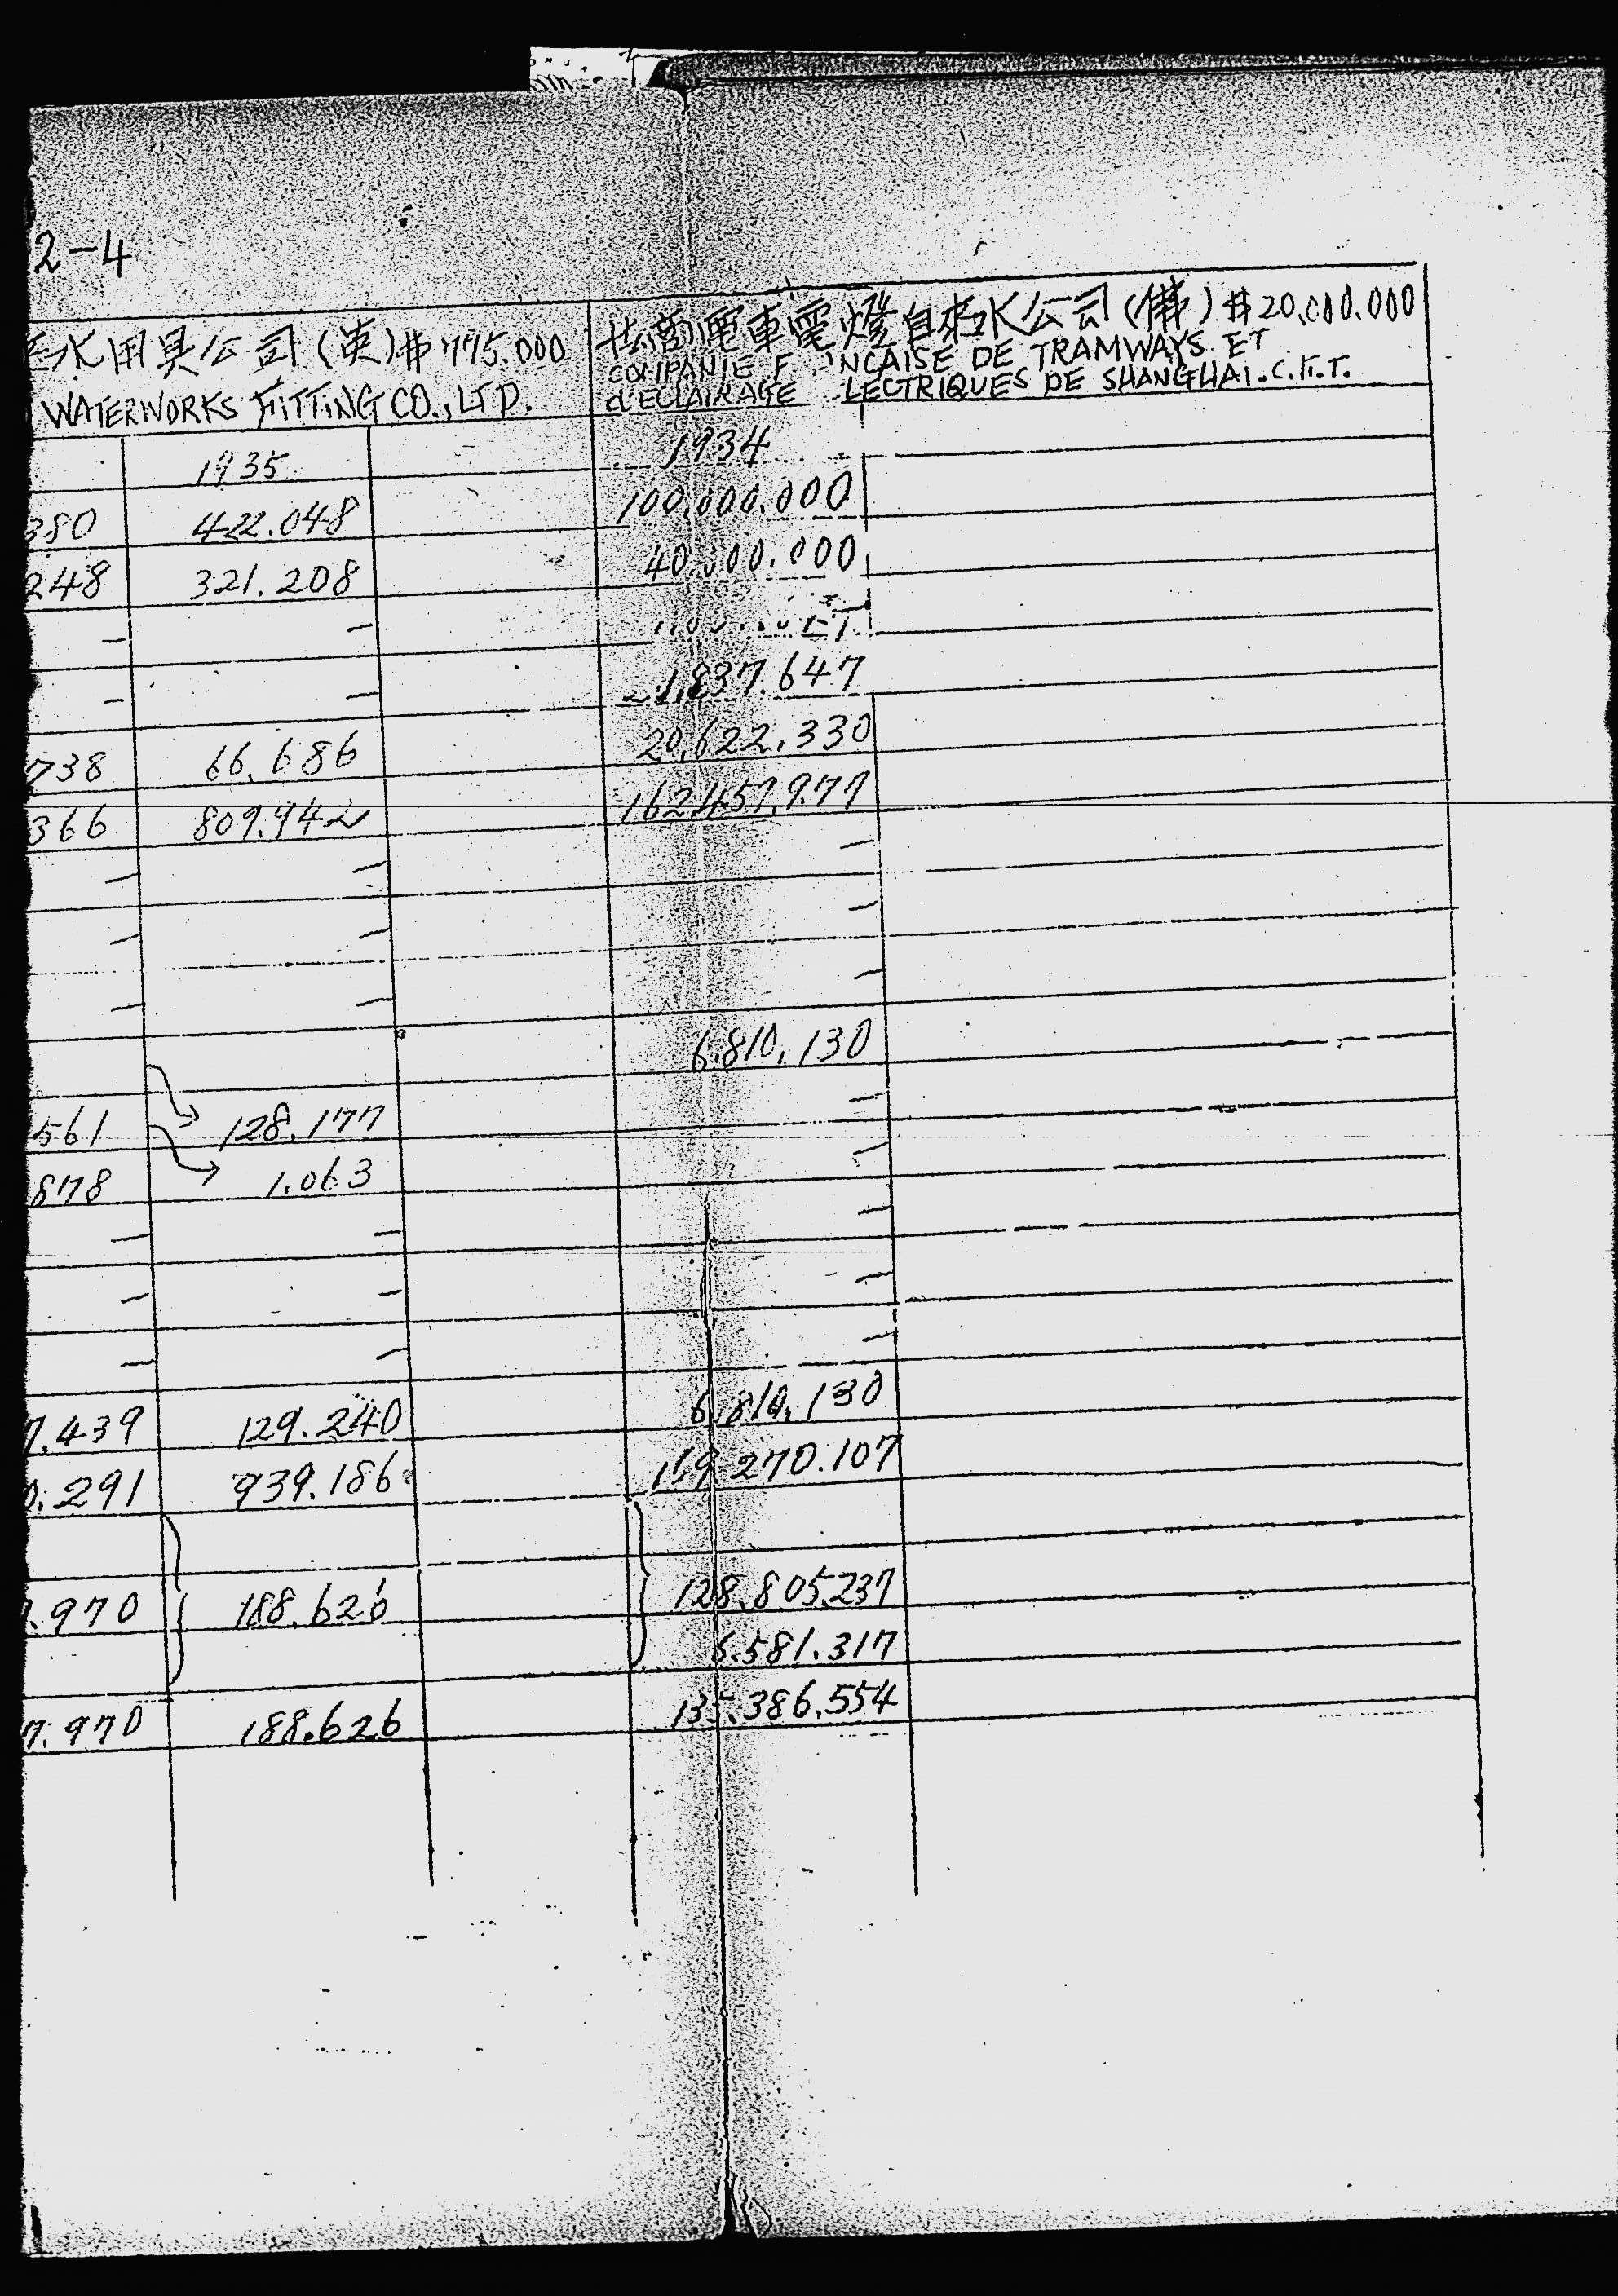 2-4
水用具公司(英)$775.000
WATERWORKS FITTING CO., LTD.
法商電車電燈自來水公司(佛)$20,000.000
COMPANIE F NCAISE DE TRAMWAYS ET
d'ECLAIRAGE LECTRIQUES DE SHANGHAI.C.F.T.
1935 1934
380 422.048 100,000.000
248 321.208 40.000.000
— —
— — 1,837.647
738 66.686 20,622.330
366 809.942 162,457,977
— — —
— — —
— — —
6,810,130
561 128.177 —
878 1.063 —
— — —
— — —
— — —
7.439 129.240 6,810,130
0.291 939.186 169,270.107
.970 188.626 128,805,237
6.581.317
7.970 188.626 135,386,554